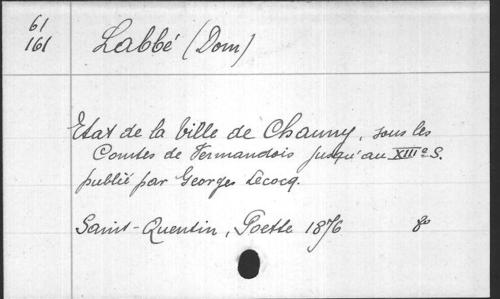 61
161
Labbé (Dom)
Etat de la Ville de Chauny, sous les
Comtes de Vermandois jusqu'au XIIIe S.
publié par Georges Lecocq.
Saint-Quentin, Poette 1876 8o